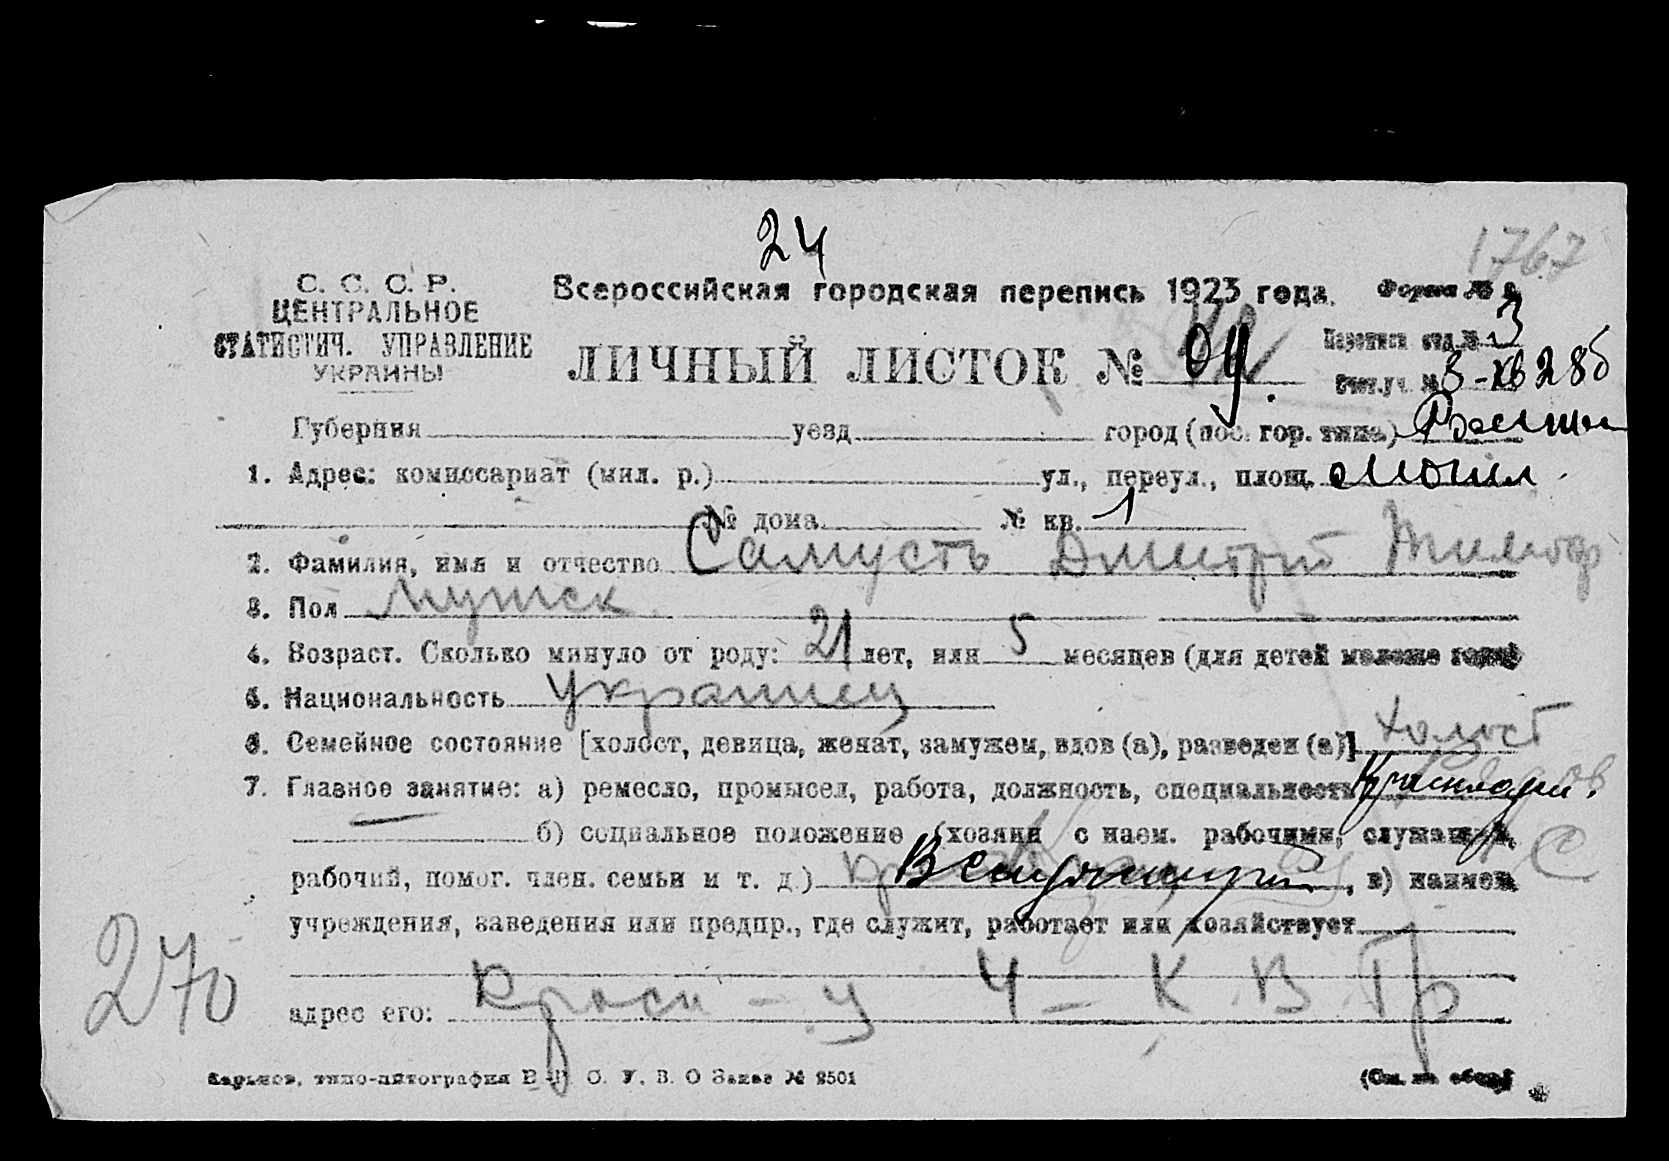 24
1767
С. С. С. Р.
ЦЕНТРАЛЬНОЕ
СТАТИСТИЧ. УПРАВЛЕНИЕ
УКРАИНЫ
Всероссийская городская перепись 1923 года.
Форма №
ЛИЧНЫЙ ЛИСТОК №
отд. № 3
Счет. уч. № 3 - 286
Губерния уезд город (пос. гор. типа)
1. Адрес: комиссариат (мил. р.) ул., переул., площ.
№ дома № кв. 1
2. Фамилия, имя и отчество Самусть Дмитрий Тимоф
3. Пол мужск
4. Возраст. Сколько минуло от роду: 21 лет, или 5 месяцев (для детей моложе года)
5. Национальность украинец
6. Семейное состояние [холост, девица, женат, замужем, вдов (а), разведен (а)] холост
7. Главное занятие: а) ремесло, промысел, работа, должность, специальность
б) социальное положение (хозяин с наем. рабочими, служащий,
С
рабочий, помог. член. семьи и т. д.) , в) наимен.
учреждения, заведения или предпр., где служит, работает или хозяйствует
270
адрес его: Красн - у Ч - К В Тр
Харьков, типо-литография В. У. З. О Заказ № 2501
(См. на обор.)